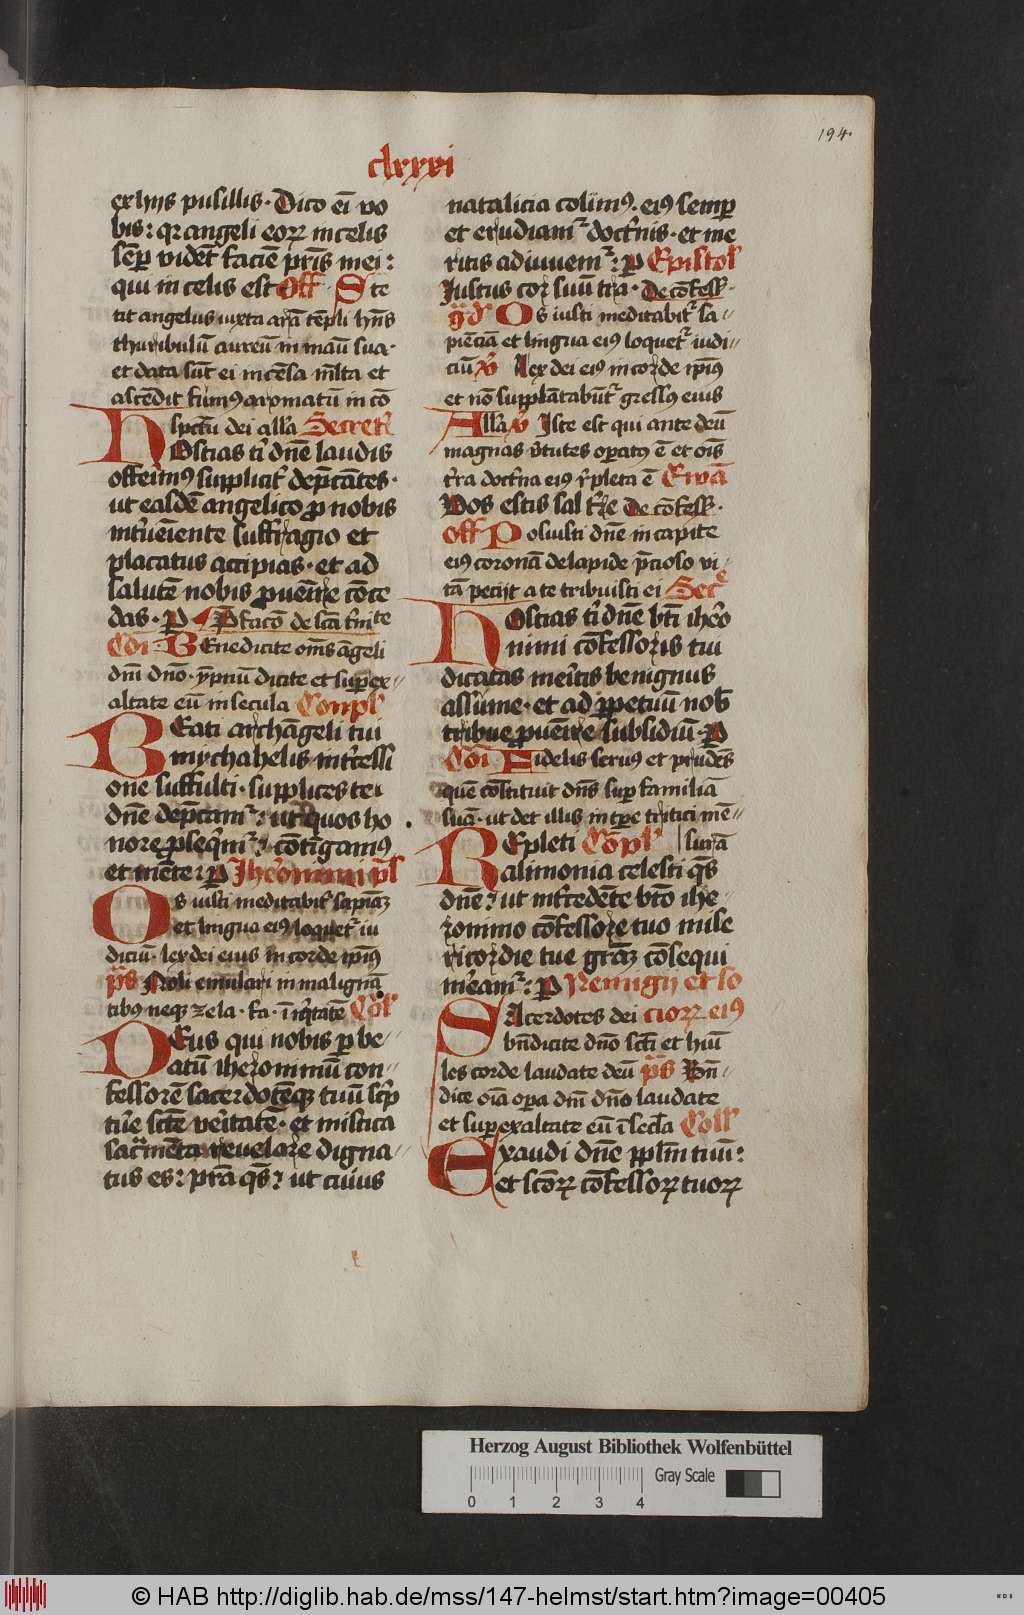 194.
clxxxvi
ex hijs pusillis. Dico eī vo
bis: qꝛ angeli eoꝝ in celis
sēꝑ vidēt faciē pr̄is mei:
qui in celis est Off Ste
tit angelus iuxta arā tēpli hn̄s
thuribulū aureū in manū sua.
et data sūt ei incēsa ml̄ta et
ascēdit fumꝰ aromatū in cō
spcūm dei all'a Secret'
HOstias ti' dn̄e laudis
offerimꝰ supplicit' dep̄cātes.
ut easdē angelico ꝓ nobis
int'veīente suffragio et
placatus accipias. et ad
salutē nobis ꝓuenīre cōce
das. P Pfacō de scā t'nite
Cōi BEnedicite om̄s āgeli
dm̄ dn̄o. ypnū dicite et superex-
altate eū in secula Conpl'
BEati archāgeli tui
mychahelis int'cessi
one suffulti. supplices te
dn̄e dep̄camꝰ: ut quos ho
nore ꝓseq'mꝰ: cōtīgamꝰ
et mēte: P Jher'onimi pb'
OS iusti meditabit' sapīaꝫ
et lingua eiꝰ loquet' iu
diciū. lex dei eius in corde ipiꝰ
p̄s Noli emulari in malignā
tibꝰ neqꝫ zela. fa. īiq'tatē Col'
DEus qui nobis per be-
atū iheronimū con-
fessorē sacerdotēqꝫ tuū sc'p
tur'e sc̄te veritatē. et mistica
sacr̄mēta revelare digna-
tus es: pr̄a qs̄: ut cuius
natalicia colimꝰ. eiꝰ semꝑ
et erudiam' doct'nis. et me
ritis adiuvem': P Epistol'
Justus cor suū tra. De cōfess'.
gd' OS iusti meditabit' sa-
piēciā et lingua eiꝰ loquet' iudi-
ciū V' Lex dei eiꝰ in corde ipīꝰ
et nō supplātabūt' gressꝰ eius
All'a V' Iste est qui ante deū
magnas v'tutes oꝑatꝰ ē et oīs
t'ra doct'na eiꝰ r'pleta ē Ewā
Vos estis sal t're De cōfess'.
Off Posuisti dn̄e in capite
eiꝰ coronā de lapide p̄cioso vi-
tā pecijt a te tribuisti ei Secr'e
HOstias ti' dn̄e bt̄i iher'o
nimi cōfessoris tui
dicatas meritis benignus
assume. et ad ꝑpetuū nob'
tribue ꝓuenīre subsidiū. P
Cōi Fidelis servꝰ et prudēs
quē cōstituit dn̄s suꝑ familiā
suā. ut det illis in tꝑe tritici mē-
REpleti Cōpl' surā
alimonia celesti qs̄
dn̄e: ut int'cedēte bt̄o ihe-
ronimo cōfessore tuo mise
ricordie tue gr̄aꝫ cōsequi
mer̄eam': P Remigij et so
SAcerdotes dei cioꝝ eiꝰ
bn̄dicite dn̄o sct̄i et hūi
les corde laudate deū p̄s Bn̄-
dicite oīa oꝑa dn̄i dn̄o laudate
et superexaltate eū ī sc̄la Coll'
EXaudi dn̄e ppl̄m tuū:
et scōꝝ cōfessoꝝ tuoꝝ
Herzog August Bibliothek Wolfenbüttel
Gray Scale
0 1 2 3 4
© HAB http://diglib.hab.de/mss/147-helmst/start.htm?image=00405